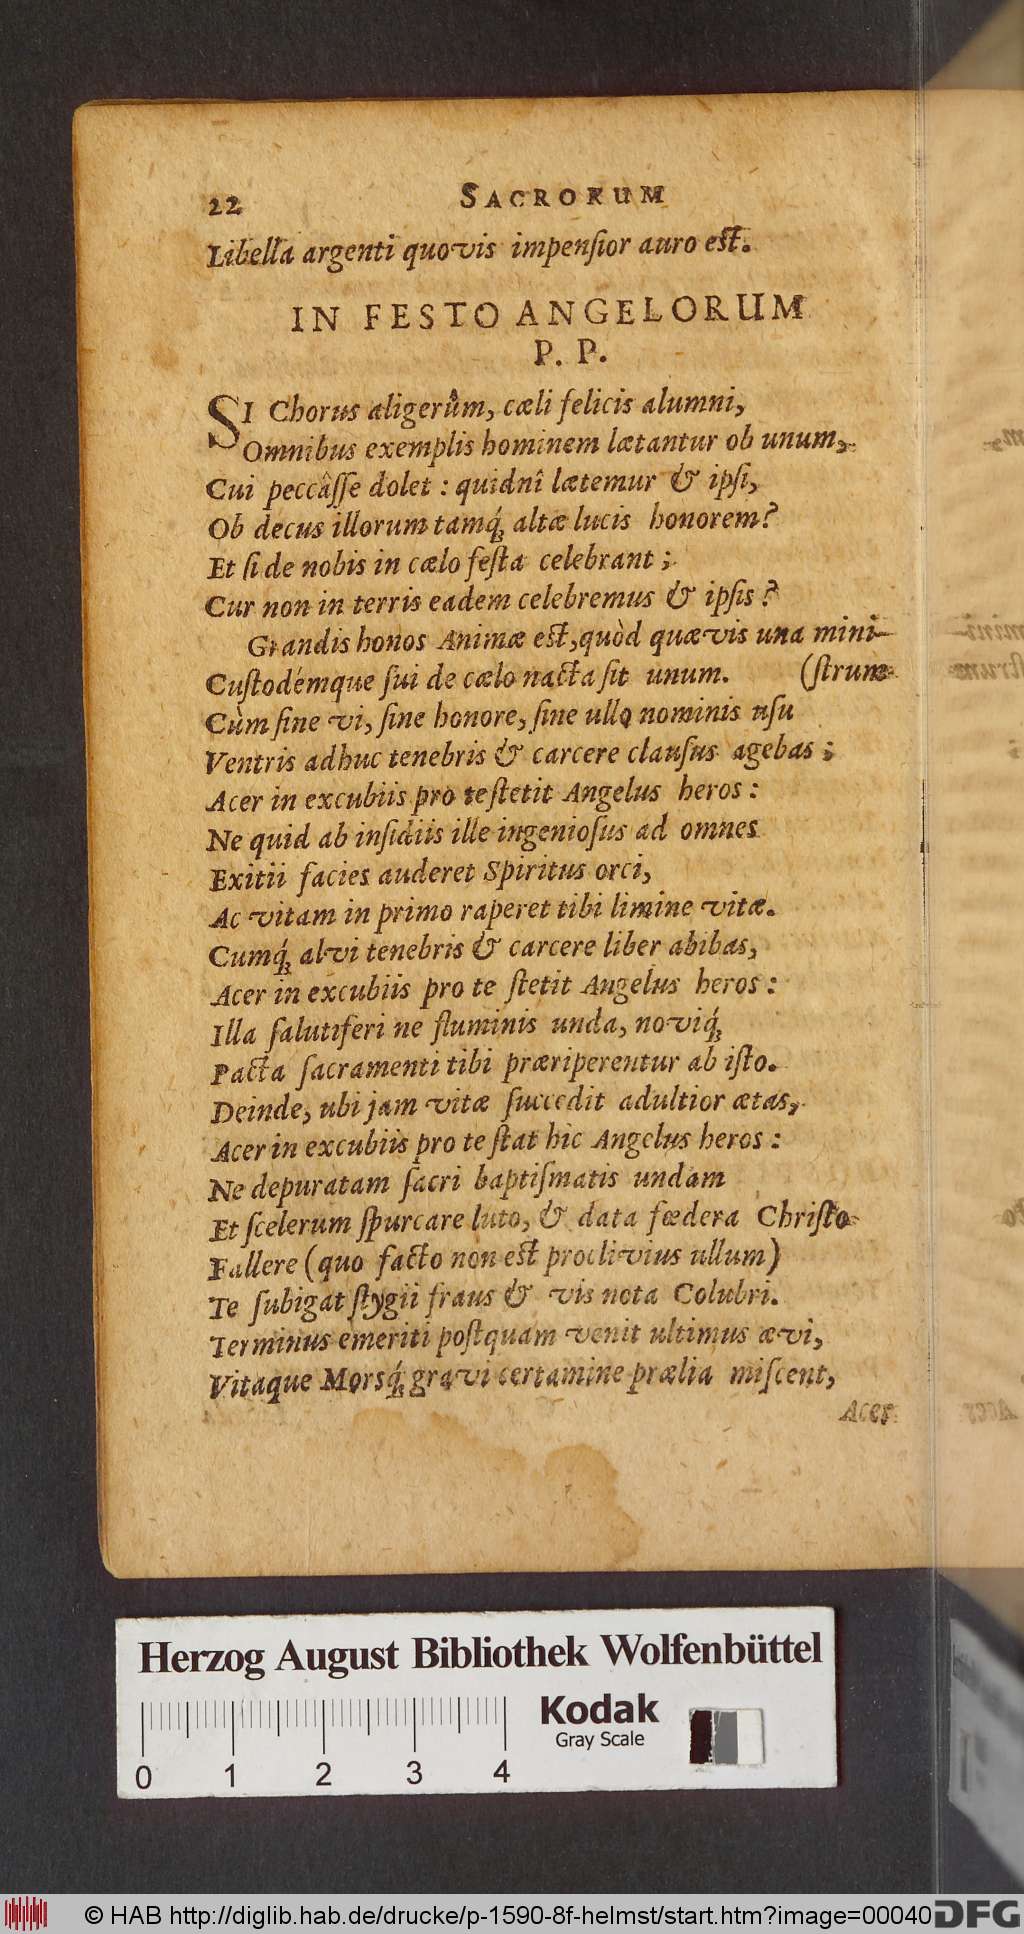 22 SACRORUM
Libella argenti quovis impenſior auro eſt.
IN FESTO ANGELORUM
P. P.
SI Chorus aligerûm, cæli felicis alumni,
Omnibus exemplis hominem lætantur ob unum,
Cui peccâſſe dolet : quidnî lætemur & ipſi,
Ob decus illorum tamq́ꝫ altæ lucis honorem?
Et ſi de nobis in cælo feſta celebrant ;
Cur non in terris eadem celebremus & ipſis?
Grandis honos Animæ eſt, quòd quævis una mini-
Cuſtodémque ſui de cælo nacta ſit unum. (ſtrum
Cùm ſine vi, ſine honore, ſine ullo nominis uſu
Ventris adhuc tenebris & carcere clauſus agebas ;
Acer in excubiis pro te ſtetit Angelus heros :
Ne quid ab inſidiis ille ingenioſus ad omnes
Exitii facies auderet Spiritus orci,
Ac vitam in primo raperet tibi limine vitæ.
Cumq́ꝫ alvi tenebris & carcere liber abibas,
Acer in excubiis pro te ſtetit Angelus heros :
Illa ſalutiferi ne fluminis unda, noviq́ꝫ
Pacta ſacramenti tibi præriperentur ab iſto.
Deinde, ubi jam vitæ ſuccedit adultior ætas,
Acer in excubiis pro te ſtat hic Angelus heros :
Ne depuratam ſacri baptiſmatis undam
Et ſcelerum ſpurcare luto, & data fœdera Chriſto
Fallere (quo facto non eſt proclivius ullum)
Te ſubigat ſtygii fraus & vis nota Colubri.
Terminus emeriti poſtquam venit ultimus ævi,
Vitaque Morsq́ꝫ gravi certamine prælia miſcent,
Acer
Herzog August Bibliothek Wolfenbüttel
Kodak
Gray Scale
0 1 2 3 4
© HAB http://diglib.hab.de/drucke/p-1590-8f-helmst/start.htm?image=00040
DFG